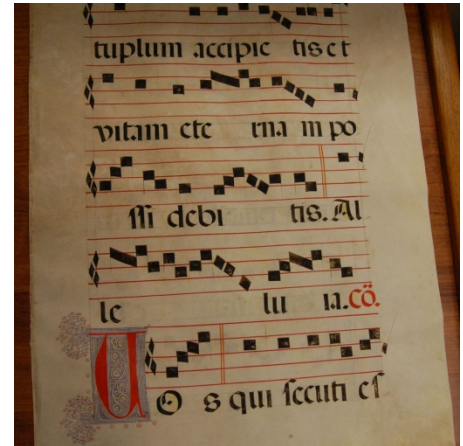 tuplum accipie tis et
vitam ete rna m po
ssi debi tis. Al
le lu ia. Cō.
VO s qui secuti es